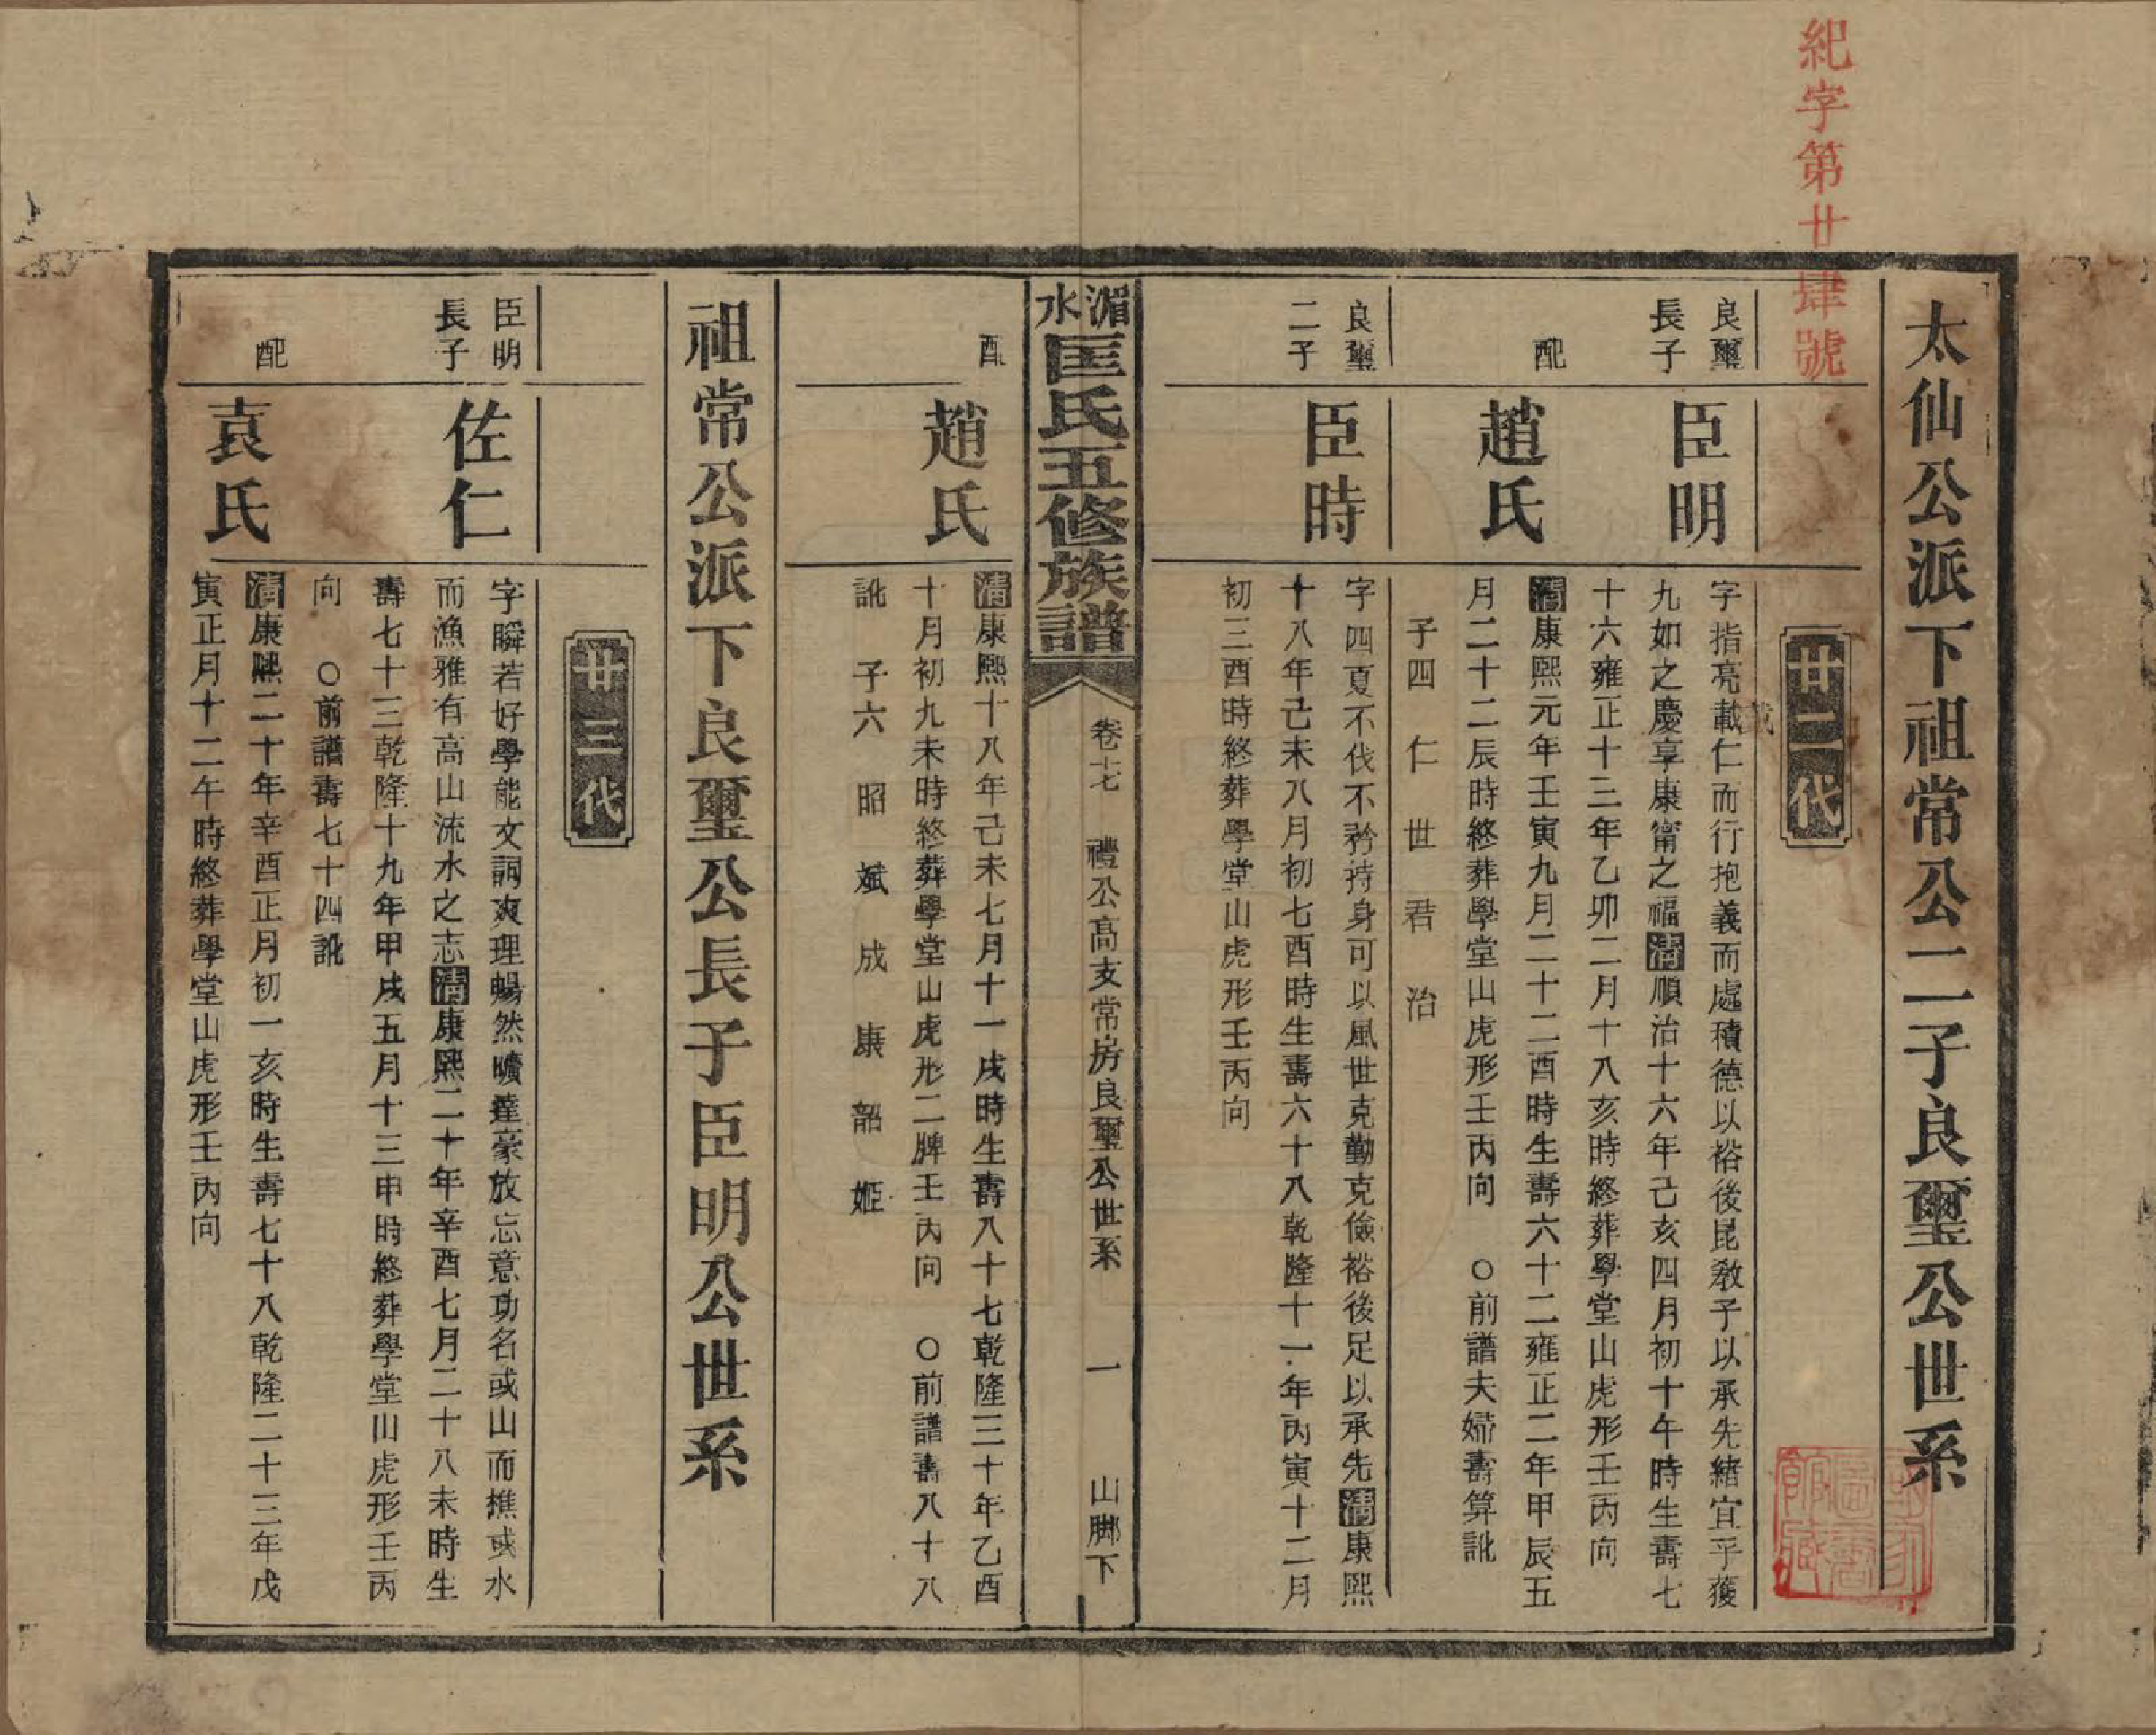 紀字第廿肆號
太仙公派下祖常公二子良璽公世系
廿二代
良璽
長子
臣明
字指亮載仁而行抱義而處積德以裕後昆教子以承先緒宜乎獲
九如之慶享康甯之福清順治十六年己亥四月初十午時生壽七
十六雍正十三年乙卯二月十八亥時終葬學堂山虎形壬丙向
配
趙氏
清康熙元年壬寅九月二十二酉時生壽六十二雍正二年甲辰五
月二十二辰時終葬學堂山虎形壬丙向 ○前譜夫婦壽算訛
子四 仁 世 君 治
良璽
二子
臣時
字四夏不伐不矜持身可以風世克勤克儉裕後足以承先清康熙
十八年己未八月初七酉時生壽六十八乾隆十一年丙寅十二月
初三酉時終葬學堂山虎形壬丙向
湄水
匡氏五修族譜
卷七 禮公高支常房良璽公世系 一 山腳下
配
趙氏
清康熙十八年己未七月十一戌時生壽八十七乾隆三十年乙酉
十月初九未時終葬學堂山虎形二脾壬丙向 ○前譜壽八十八
訛 子六 昭 斌 成 康 韶 姬
祖常公派下良璽公長子臣明公世系
廿三代
臣明
長子
佐仁
字瞬若好學能文詞爽理暢然曠達豪放忘意功名或山而樵或水
而漁雅有高山流水之志清康熙二十年辛酉七月二十八未時生
壽七十三乾隆十九年甲戌五月十三申時終葬學堂山虎形壬丙
向 ○前譜壽七十四訛
配
袁氏
清康熙二十年辛酉正月初一亥時生壽七十八乾隆二十三年戊
寅正月十二午時終葬學堂山虎形壬丙向